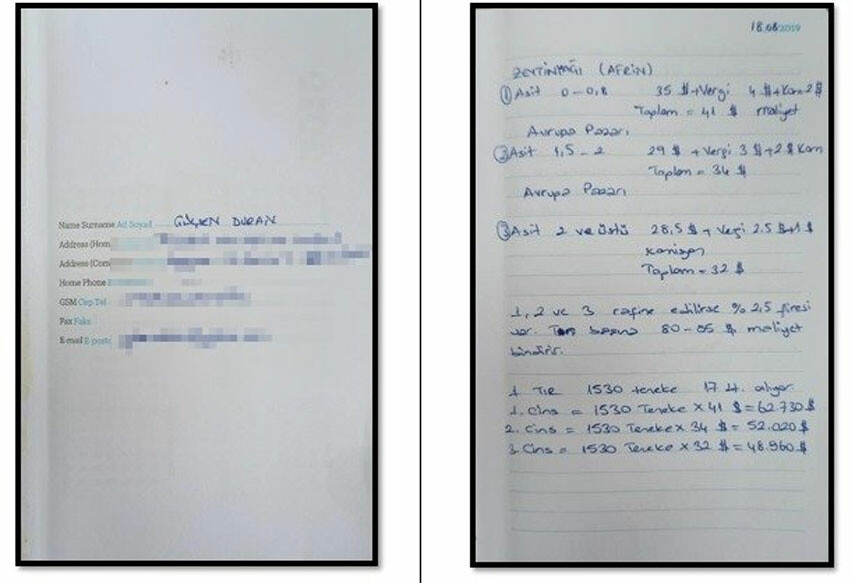 Name Surname Ad Soyad GÜLŞEN DURAN
Address (Hom
Address (Com
Home Phone
GSM Cep Tel
Fax Faks
E-mail E-posta
18.08.2019
ZEYTİNYAĞI (AFRİN)
① Asit 0-0,8 35 $+Vergi 4 $+Kom 2 $
Toplam = 41 $ maliyet
Avrupa Pazarı
② Asit 1,5-2 29 $ + Vergi 3 $+2 $ Kom
Toplam = 34 $
Avrupa Pazarı
③ Asit 2 ve üstü 28,5 $ + Vergi 2.5 $+1 $
komisyon
Toplam = 32 $
1, 2 ve 3 rafine edilirse % 2,5 firesi
var. Ton başına 80-85 $ maliyet
bindirir.
1 TIR 1530 teneke 17 Lt. alıyor
1. Cins = 1530 Teneke X 41 $ = 62.730 $
2. Cins = 1530 Teneke X 34 $ = 52.020 $
3. Cins = 1530 Teneke X 32 $ = 48.960 $